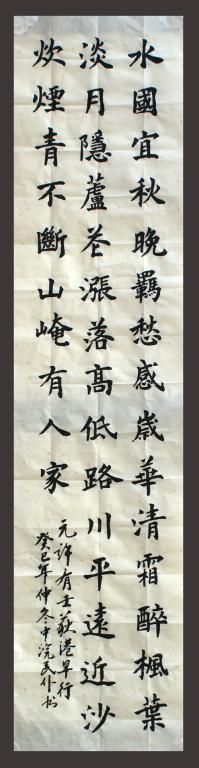 水國宜秋晚羈愁感歲華清霜醉楓葉
淡月隱蘆花漲落高低路川平遠近沙
炊煙青不斷山崦有人家
元許有壬荻港早行
癸巳年仲冬中浣